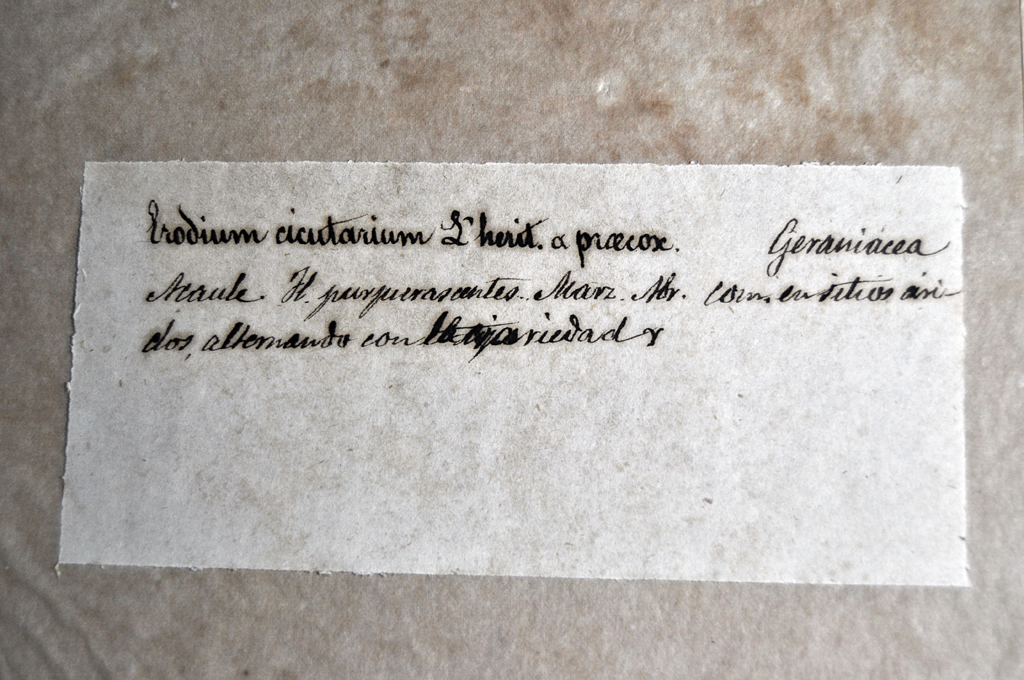 Erodium cicutarium L'herit. α præcox. Geraniácea
Acaule. Fl. purpurascentes. Marz. Abr. com. en sitios ári-
dos, alternando con la variedad γ